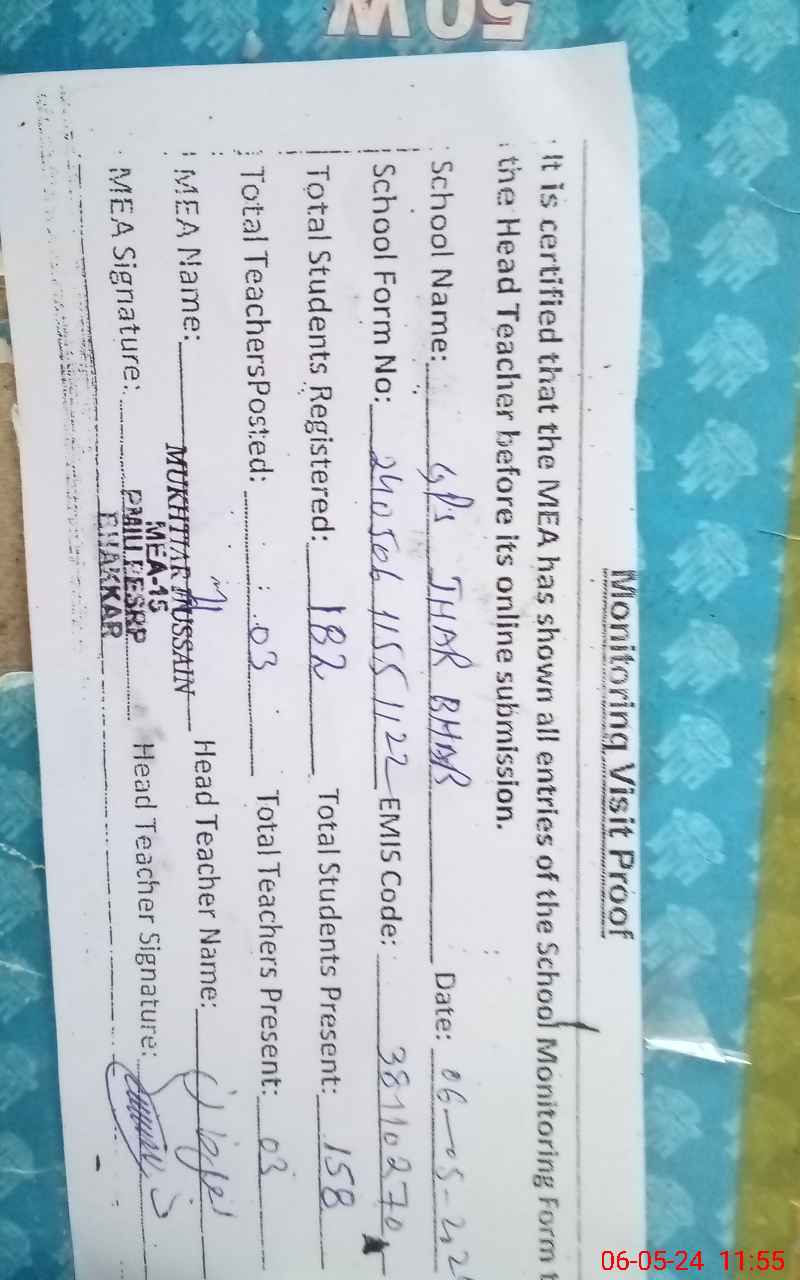 50W
Monitoring Visit Proof
It is certified that the MEA has shown all entries of the School Monitoring Form t
the Head Teacher before its online submission.
School Name: GPS THAR BHAR Date: 06-05-24
School Form No: 240506 1155 1122 EMIS Code: 38110270
Total Students Registered: 182 Total Students Present: 158
Total TeachersPosted: 03 Total Teachers Present: 03
MEA Name: MUKHTIAR HUSSAIN Head Teacher Name:
MEA-15
MEA Signature: PMIU PESRP Head Teacher Signature:
BHAKKAR
06-05-24 11:55